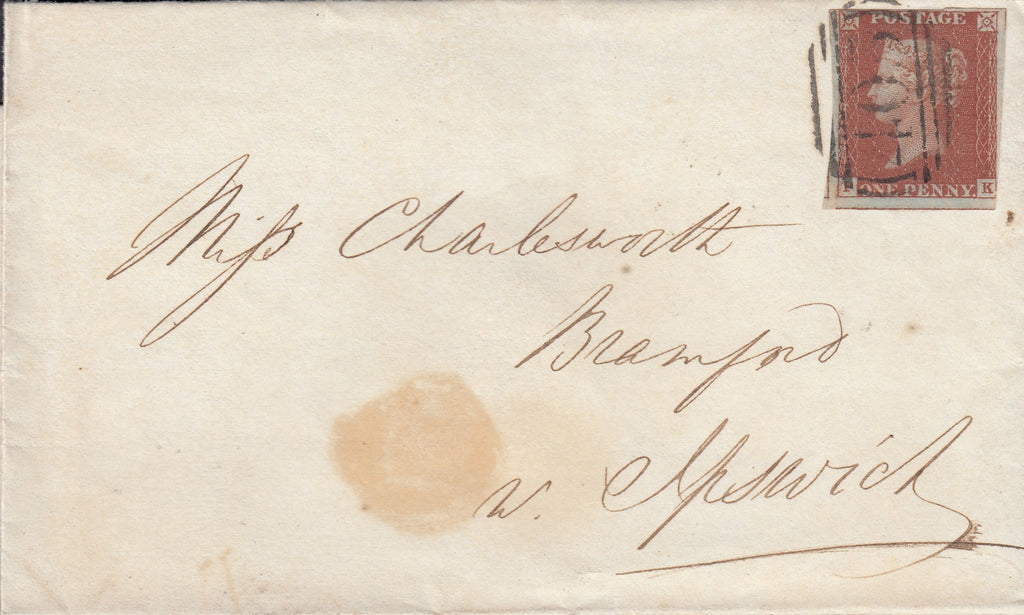 POSTAGE
ONE PENNY K
Miss Charlesworth
Bramford
n. Ipswich